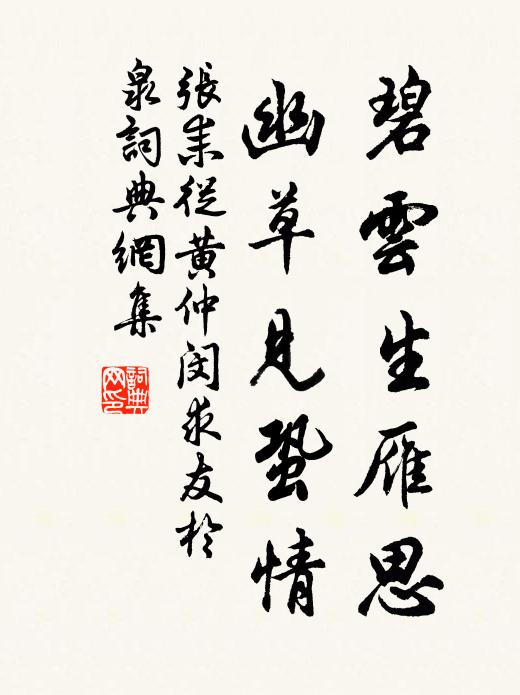 碧雲生雁思
幽草見蛩情
張耒從黃仲閔求友於
泉詞典網集
詞典网印